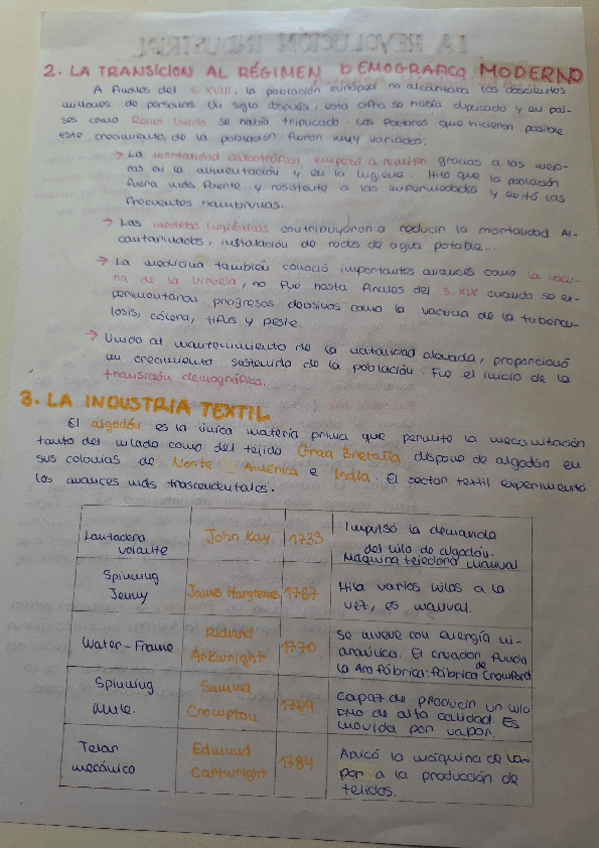 2. LA TRANSICION AL RÉGIMEN DEMOGRÁFICO MODERNO
A finales del s. XVIII, la población europea no alcanzaba los doscientos
millones de personas. Un siglo después, esta cifra se había duplicado y en paí-
ses como Reino Unido se había triplicado. Los factores que hicieron posible
este crecimiento de la población fueron muy variados:
→ La mortalidad catastrófica empezó a remitir gracias a las mejo-
ras en la alimentación y en la higiene. Hizo que la población
fuera más fuerte y resistente a las enfermedades y evitó las
frecuentes hambrunas.
→ Las medidas higiénicas contribuyeron a reducir la mortalidad Al-
cantarillados, instalación de redes de agua potable...
→ La medicina también conoció importantes avances como la vacu-
na de la viruela, no fue hasta finales del s. XIX cuando se ex-
perimentaron progresos decisivos como la vacuna de la tubercu-
losis, cólera, tifus y peste.
→ Unido al mantenimiento de la natalidad elevada, proporcionó
un crecimiento sostenido de la población. Fue el inicio de la
transición demográfica.
3. LA INDUSTRIA TEXTIL.
El algodón es la única materia prima que permite la mecanización
tanto del hilado como del tejido. Gran Bretaña dispone de algodón en
sus colonias de Norte América e India. El sector textil experimentó
los avances más trascendentales.
Lanzadera volante | John Kay | 1733 | Impulsó la demanda
del hilo de algodón.
Máquina tejedora manual
Spinning Jenny | James Hargreaves | 1767 | Hila varios hilos a la
vez, es manual.
Water-Frame | Richard Arkwright | 1770 | Se mueve con energía hi-
draúlica. El creador fundó
la 1ra fábrica: fábrica de Cromford
Spinning mule. | Samuel Crompton | 1779 | Capaz de producir un hilo
fino de alta calidad. Es
movida por vapor.
Telar mecánico | Edmund Cartwright | 1784 | Aplicó la máquina de va-
por a la producción de
tejidos.